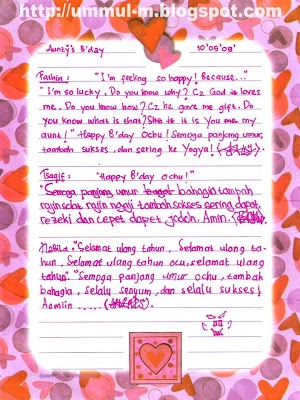 http://ummul-m.blogspot.com
Aunty's B'day 10'05'09'
Fathin : "I'm feeling so happy! Because..."
"I'm so lucky. Do you know why? Cz God is loves
me. Do you know how? Cz he gave me gift. Do
you know what is that? She is it is You me my
aunt!" Happy B'day Ochu! Semoga panjang umur,
tambah sukses, dan sering ke Yogya!
Tsaqif: "Happy B'day ochu!"
"Semoga panjang umur bagagt bahagia tampah
rajin solat rajin ngaji tambah sukses sering dapat
rezeki dan cepet dapet jodoh. Amin.
Nabila "Selamat ulang tahun, Selamat ulang ta-
hun, Selamat ulang tahun ocu, selamat ulang
tahun". "Semoga panjang umur ochu, tambah
bahagia, selalu senyum, dan selalu sukses!
Aamiin .....